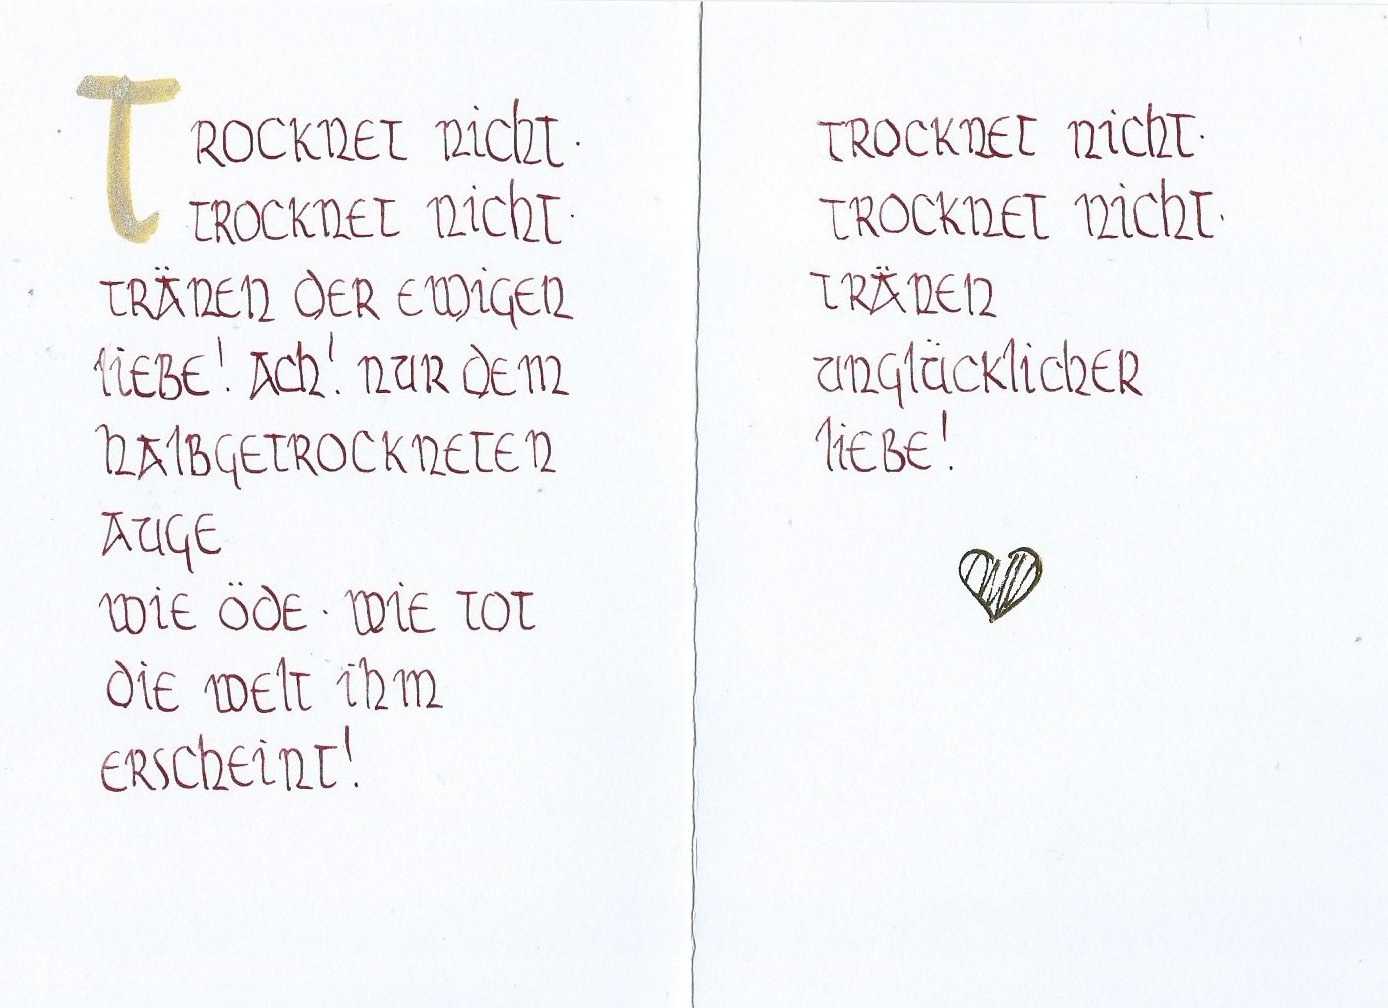 TROCKNET NICHT·
TROCKNET NICHT·
TRÄNEN DER EWIGEN
LIEBE! ACH! NUR DEM
HALBGETROCKNETEN
AUGE
WIE ÖDE· WIE TOT
DIE WELT IHM
ERSCHEINT!
TROCKNET NICHT·
TROCKNET NICHT·
TRÄNEN
UNGLÜCKLICHER
LIEBE!